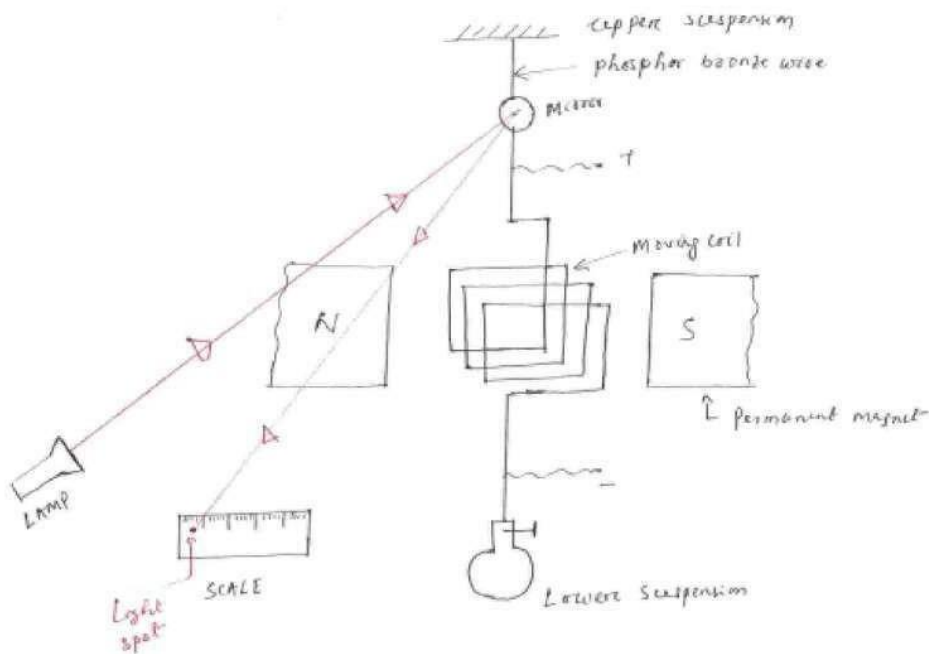 upper suspension
phosphor bronze wire
Mirror
+
Moving coil
N
S
Permanent magnet
LAMP
-
SCALE
Light
spot
Lower suspension